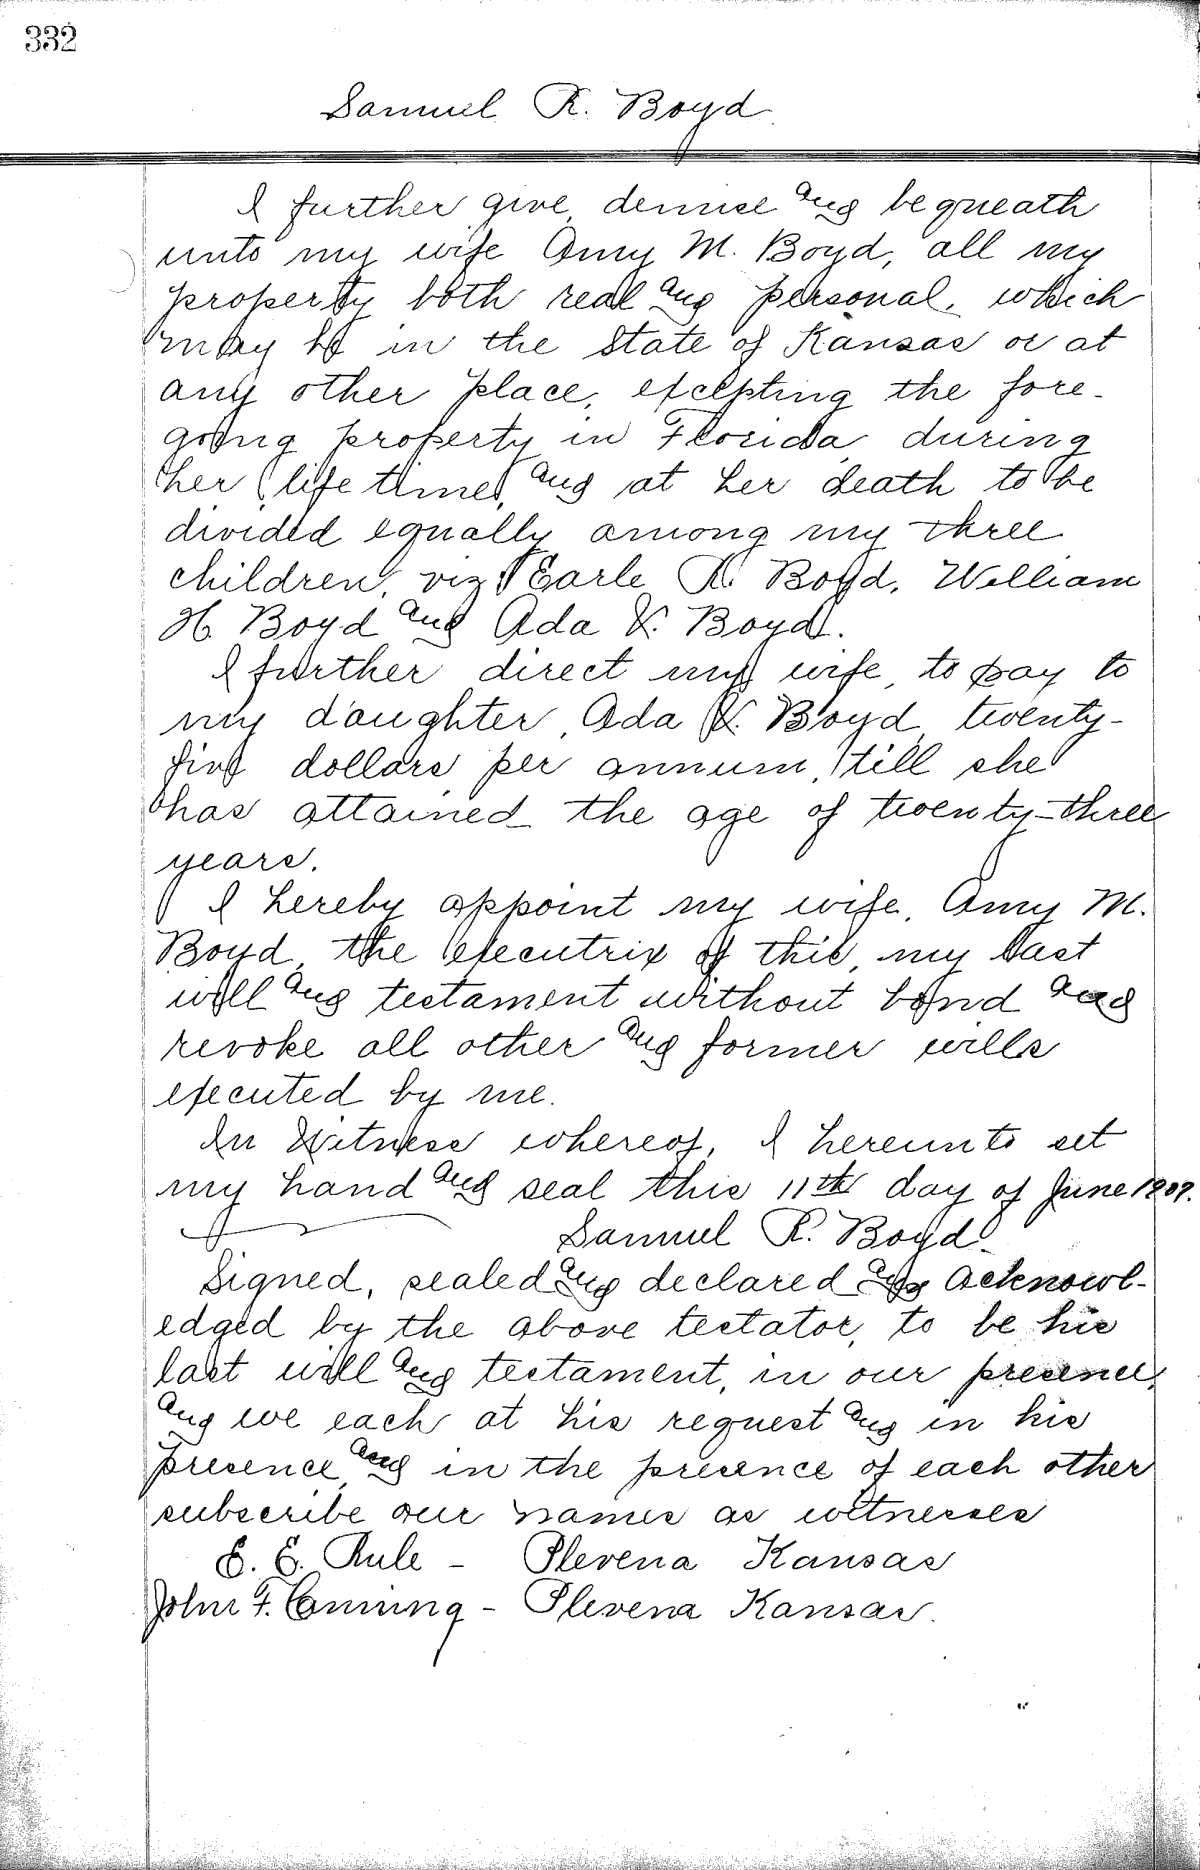 332
Samuel R. Boyd
I further give, demise and bequeath
unto my wife Amy M. Boyd, all my
property both real and personal, which
may be in the State of Kansas or at
any other place, excepting the fore-
going property in Florida, during
her life time, and at her death to be
divided equally among my three
children, viz, Earle R. Boyd, William
H. Boyd and Ada V. Boyd.
I further direct my wife, to pay to
my daughter, Ada V. Boyd, twenty-
five dollars per annum, till she
has attained the age of twenty-three
years.
I hereby appoint my wife, Amy M.
Boyd, the executrix of this, my last
will and testament without bond and
revoke all other and former wills
executed by me.
In Witness whereof, I hereunto set
my hand and seal this 11th day of June 1909.
Samuel R. Boyd.
Signed, sealed and declared and acknowl-
edged by the above testator, to be his
last will and testament, in our presence,
and we each at his request and in his
presence, and in the presence of each other
subscribe our names as witnesses
E. E. Rule - Plevena Kansas
John F. - Plevena Kansas.